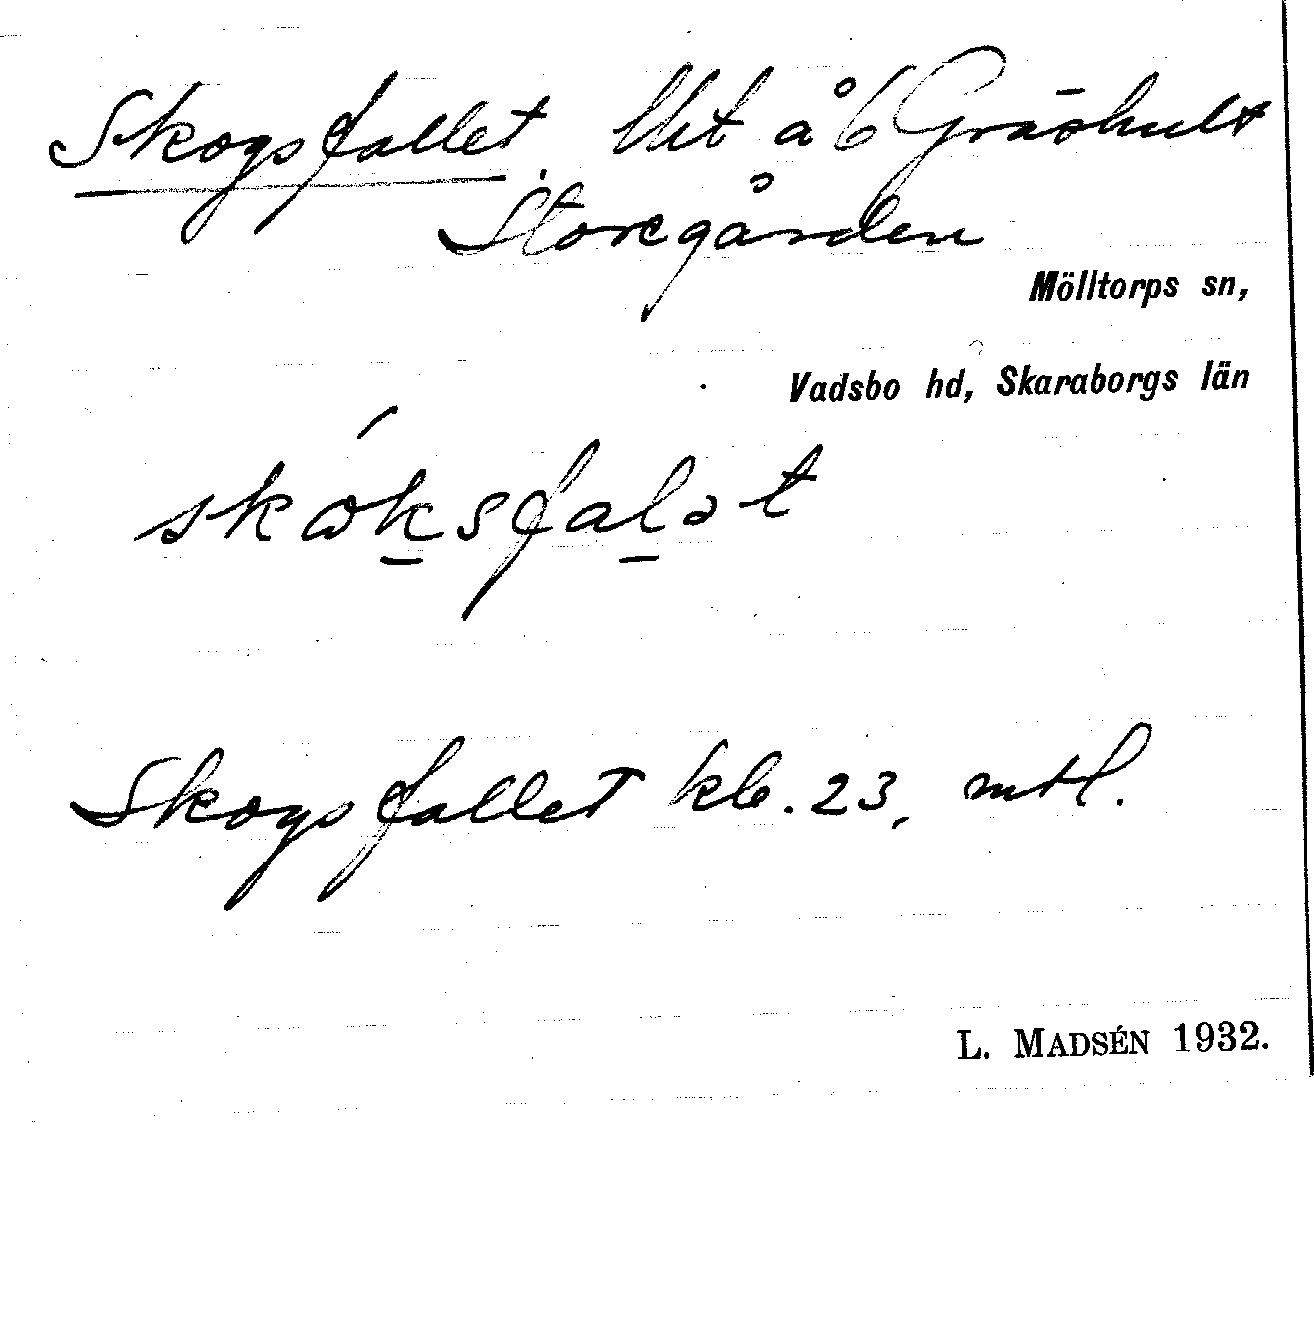 Skogsfallet, lht å 6 Gräshult
Storegården
Mölltorps sn,
Vadsbo hd, Skaraborgs län
skωksfalət
Skogsfallet kb. 23, mtl.
L. MADSÉN 1932.